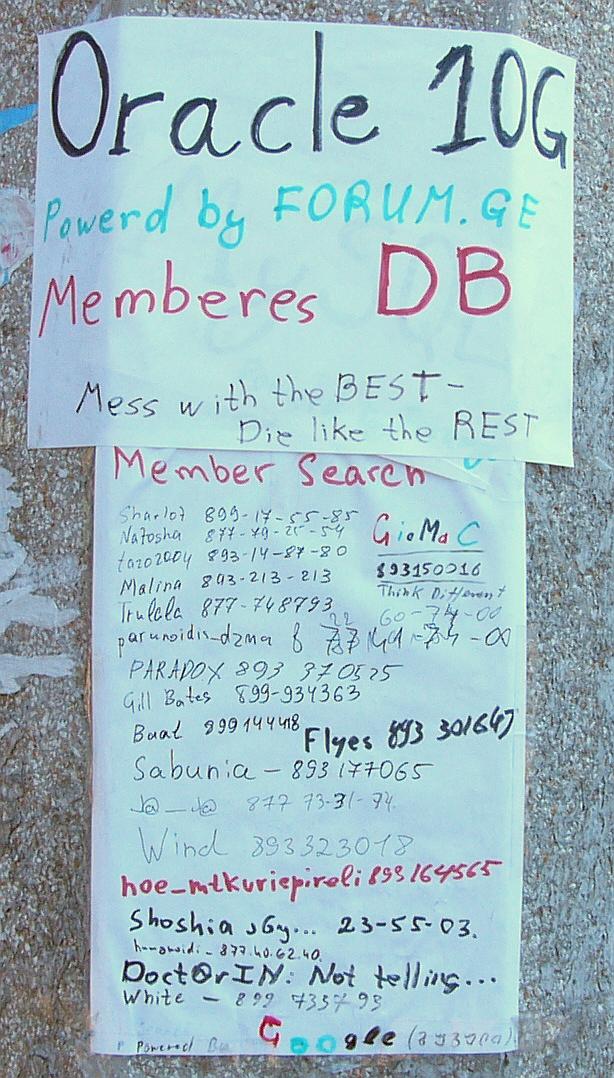 Oracle 10G
Powerd by FORUM.GE
Memberes DB
Mess with the BEST -
Die like the REST
Member Search
Sharlot 899-17-55-85
Natosha 877-79-25-54
tazo2004 893-14-87-80
Malina 893-213-213
Trulala 877-748793
GioMaC
893150016
Think Different
paranoidis_dzma
PARADOX 893 370525
Gill Bates 899-934363
Baal 899144418
Flyes 893 301647
Sabunia - 893177065
J@_J@ 877 73-31-74.
Wind 893323018
hoe_mtkuriepireli 893164565
Shoshia ... 23-55-03.
humanoidi - 877.40.62.40.
Doct@rIN: Not telling...
White - 899 735793
Powered By Google